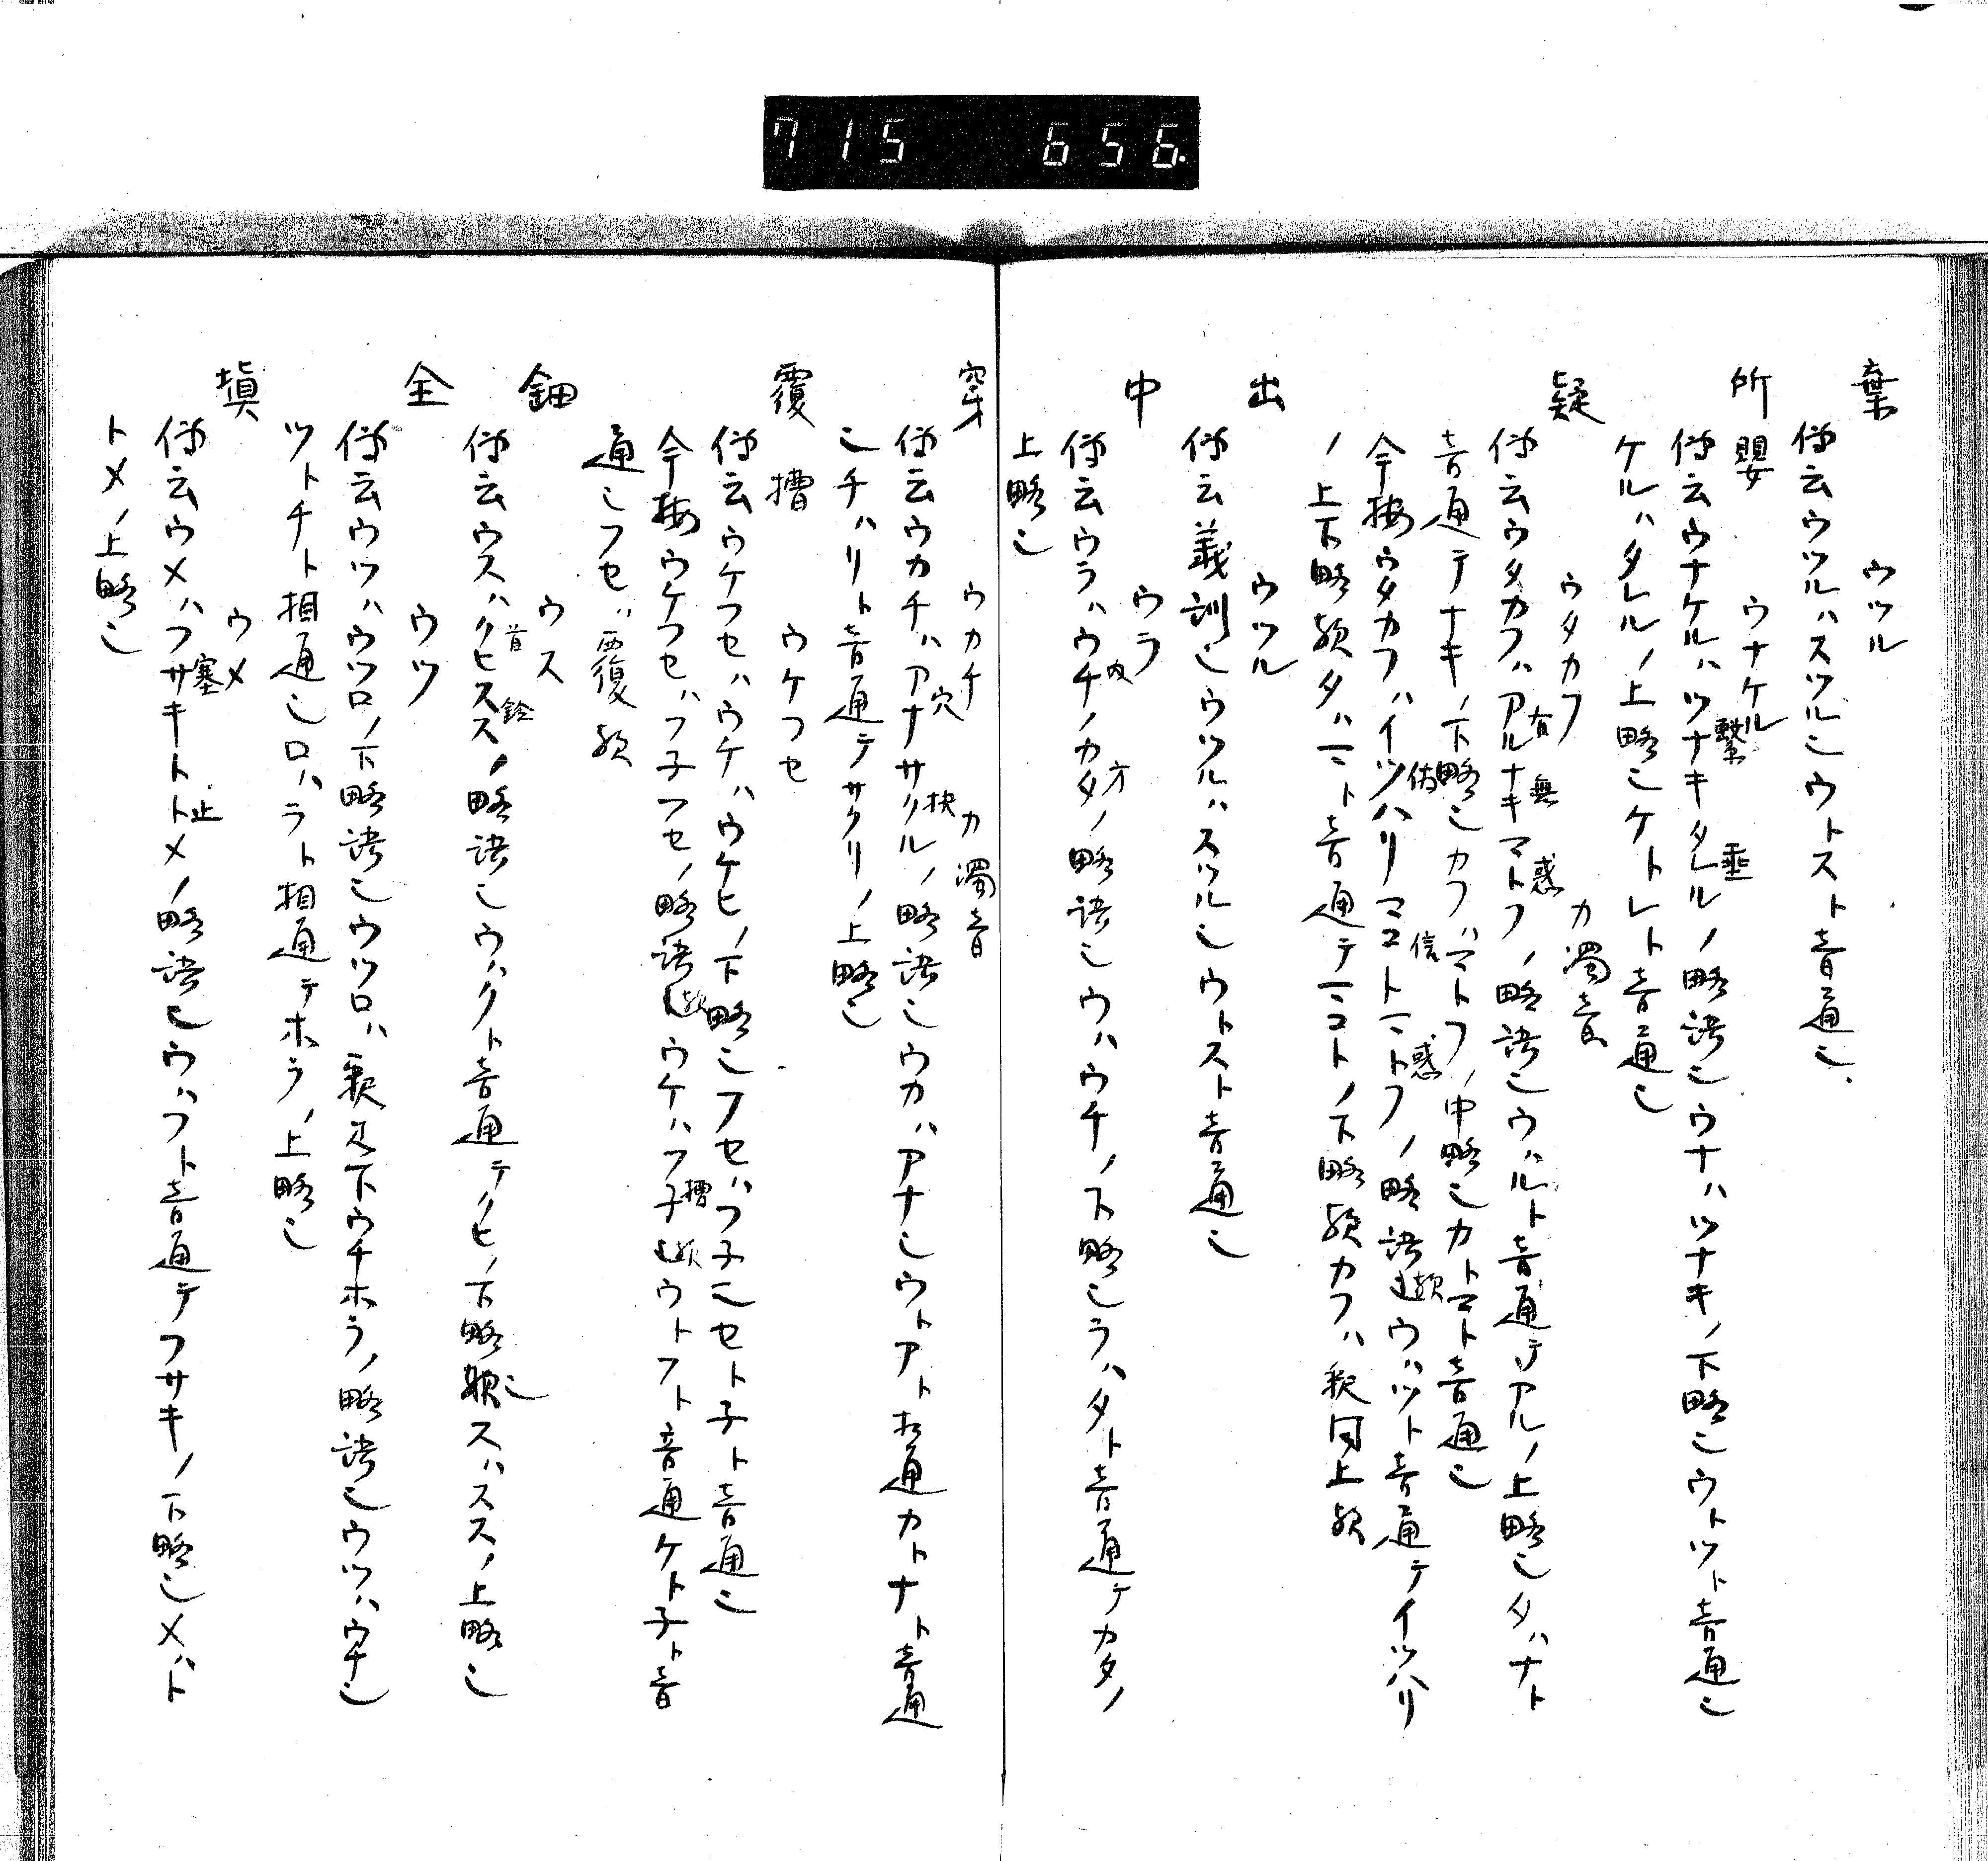 715 656.
棄 ウツル
傳云ウツルハスツル也ウトスト音通也
所嬰 ウナケル
傳云ウナケルハツナキタレルノ略語也ウナハツナキノ下略也ウトツト音通也
繫 垂
ケルハタレルノ上略也ケトレト音通也
疑 ウタカフ カ濁音
傳云ウタカフハアルナキマトフノ略語也ウハルト音通テアルノ上略也タハナト
有 無 惑
音通テナキノ下略也カフハマトフノ中略也カトマト音通也
今按ウタカフハイツハリマコトマトフノ略語也歟ウハツト音通テイツハリ
偽 信 惑
ノ上下略歟タハマト音通テマコトノ下略歟カフハ釈同上歟
出 ウツル
傳云義訓也ウツルハスツル也ウトスト音通也
中 ウラ
傳云ウラハウチノカタノ略語也ウハウチノ下略也ラハタト音通テカタノ
内 方
上略也
穿 ウカチ カ濁音
傳云ウカチハアナサクルノ略語也ウカハアナ也ウトアト相通カトナト音通
穴 抉
也チハリト音通テサクリノ上略也
覆槽 ウケフセ
傳云ウケフセハウケハウケヒノ下略也フセハフ子也セト子ト音通也
今按ウケフセハフ子フセノ略語也歟ウケハフ子也歟ウトフト音通ケト子ト音
槽
通也フセハ覆歟
鈿 ウス
傳云ウスハクヒススノ略語也ウハクト音通テクヒノ下略也歟スハススノ上略也
首 鈴
全 ウツ
傳云ウツハウツロノ下略語也ウツロハ釈天下ウチホラノ略語也ウツハウチ也
ツトチト相通也ロハラト相通テホラノ上略也
塡 ウメ
傳云ウメハフサキトメノ略語也ウハフト音通テフサキノ下略也メハト
塞 止
トメノ上略也